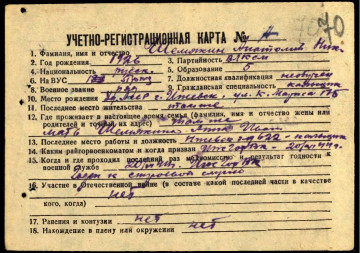 70
УЧЕТНО-РЕГИСТРАЦИОННАЯ КАРТА № А
1. Фамилия, имя и отчество Шемякин Анатолий Ник.
2. Год рождения 1926 3. Партийность ВЛКСМ
4. Национальность русск. 5. Образование 5
6. На ВУС 7. Должностная квалификация необучен
8. Военное звание ряд. 9. Гражданская специальность
10. Место рождения г. Ижевск, ул. К. Маркса 195
11. Последнее место жительства тоже
12. Где проживает в настоящее время семья (фамилия, имя и отчество жены или
родителей и точный их адрес)
мать Шемякина
13. Последнее место работы и должность Ижевск 622
14. Каким райгорвоенкоматом и когда призван
15. Когда и где проходил последний раз медкомиссию и результат годности к
военной службе
Годен к строевой службе
16. Участие в Отечественной войне (в составе какой последней части в качестве
кого, когда) нет
17. Ранения и контузии нет
18. Нахождение в плену или окружении нет